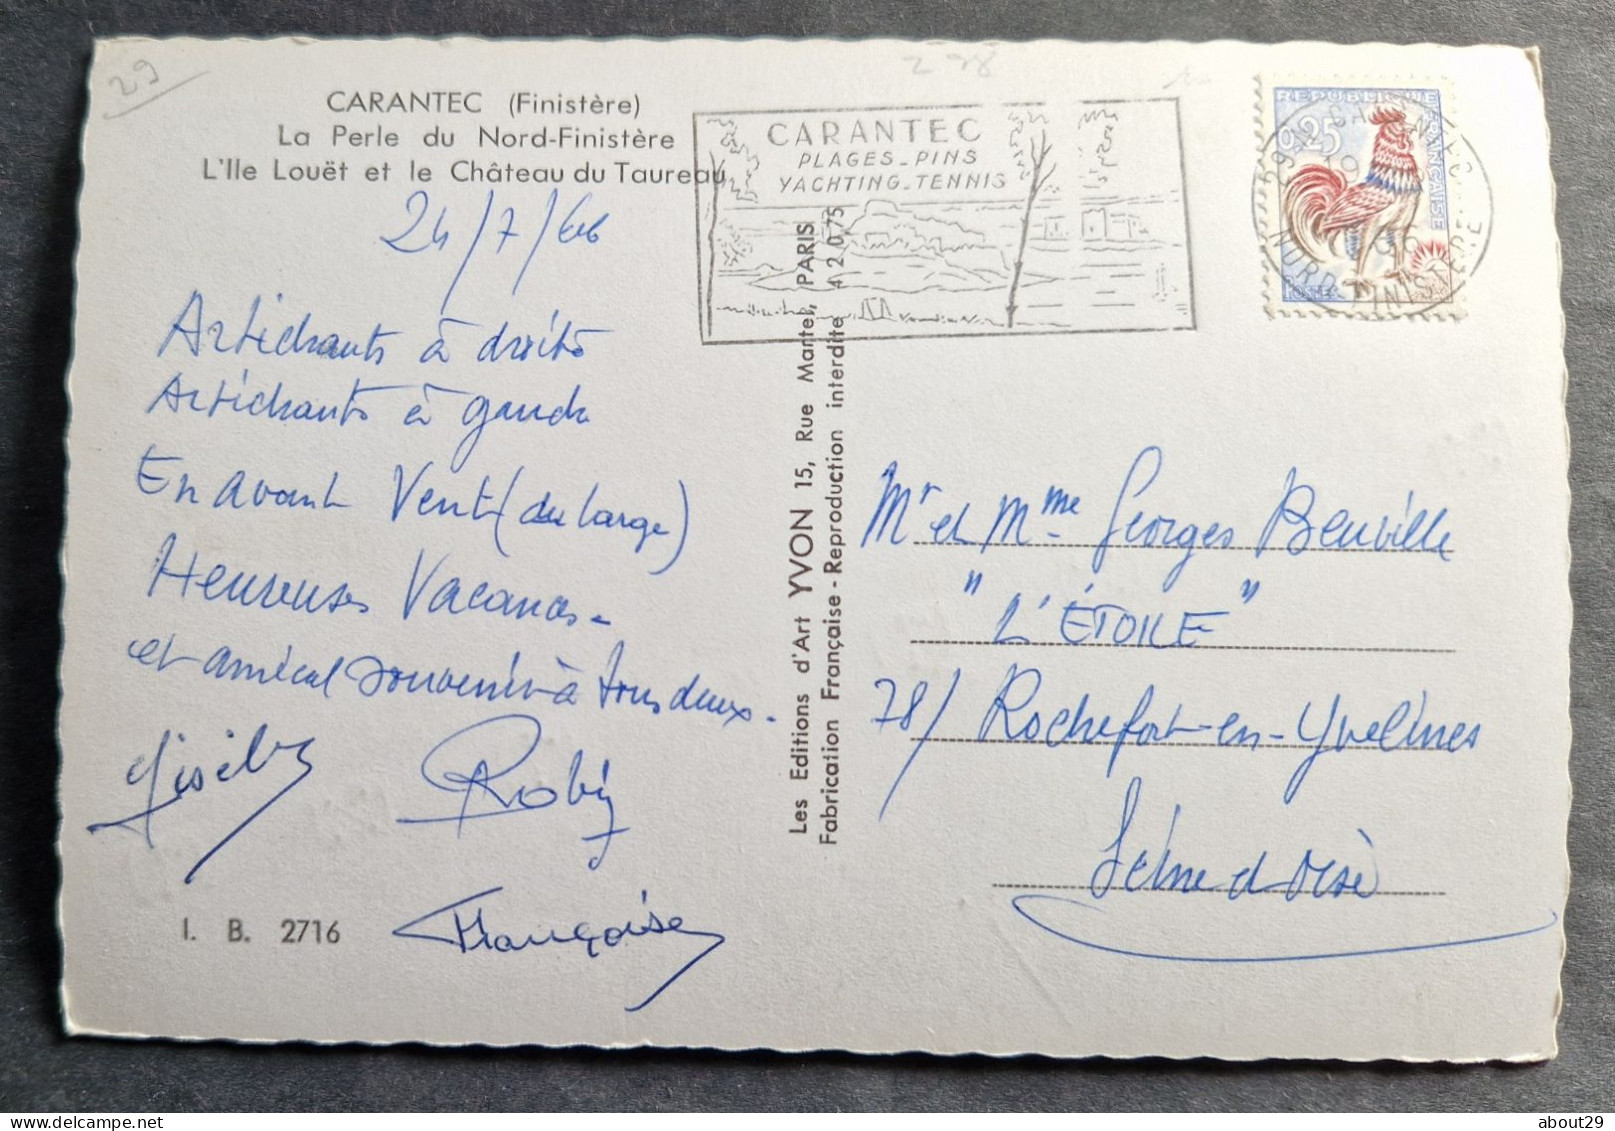 29
CARANTEC (Finistère)
La Perle du Nord-Finistère
L'Ile Louët et le Château du Taureau
24/7/66
Artichauts à droite
Artichauts à gauche
En avant Vent (du large)
Heureuses Vacances -
et amical souvenir à tous deux.
Robin
Françoise
I. B. 2716
Les Editions d'Art YVON 15, Rue Martel, PARIS
Fabrication Française - Reproduction interdite 4 2 0 75
CARANTEC
PLAGES_PINS
YACHTING_TENNIS
REPUBLIQUE FRANÇAISE
0,25
POSTES
CARANTEC
NORD FINISTERE
Mr et Mme Georges Beuville
"L'ÉTOILE"
78/ Rochefort-en-Yvelines
Seine et Oise
about29